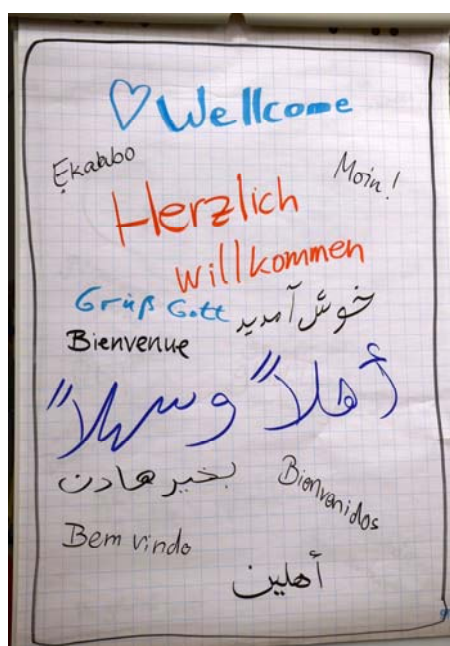 Wellcome
Ẹkabbo
Moin!
Herzlich
willkommen
Grüß Gott
خوش آمدید
Bienvenue
أهلاً وسهلاً
بخير هادن
Bienvenidos
Bem vindo
أهلين